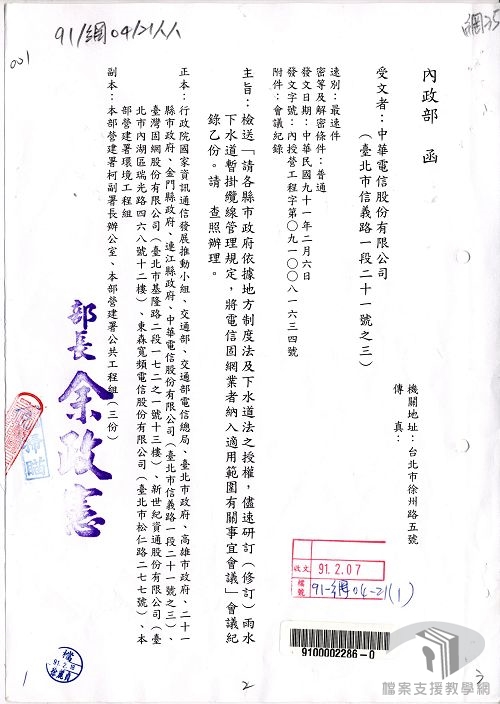 91/網04/21/人人
001
內政部 函
機關地址：台北市徐州路五號
傳 真：
受文者：中華電信股份有限公司
（臺北市信義路一段二十一號之三）
速別：最速件
密等及解密條件：普通
發文日期：中華民國九十一年二月六日
發文字號：內授營工程字第○九一○○八一六三四號
附件：會議紀錄
主旨：檢送「請各縣市政府依據地方制度法及下水道法之授權，儘速研訂（修訂）雨水
下水道暫掛纜線管理規定，將電信固網業者納入適用範圍有關事宜會議」會議紀
錄乙份。請 查照辦理。
正本：行政院國家資訊通信發展推動小組、交通部、交通部電信總局、臺北市政府、高雄市政府、二十一
縣市政府、金門縣政府、連江縣政府、中華電信股份有限公司（臺北市信義路一段二十一號之三）、
臺灣固網股份有限公司（臺北市基隆路二段一七二之一號十三樓）、新世紀資通股份有限公司（臺
北市內湖區瑞光路四六八號十二樓）、東森寬頻電信股份有限公司（臺北市松仁路二七七號）、本
部營建署環境工程組
副本：本部營建署柯副署長辦公室、本部營建署公共工程組（三份）
部長 余政憲
收文 91.2.07
檔號 91-網04-21(1)
9100002286-0
檔
1
2
3
檔案支援教學網